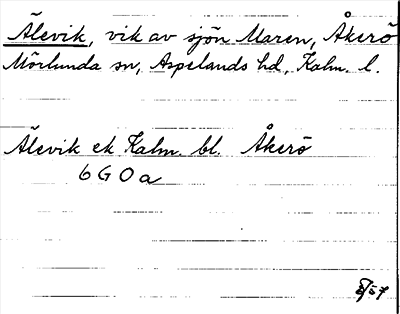 Älevik, vik av sjön Maren, Åkerö
Mörlunda sn, Aspelands hd, Kalm. l.
Älevik ek Kalm. bl. Åkerö
6 G 0 a